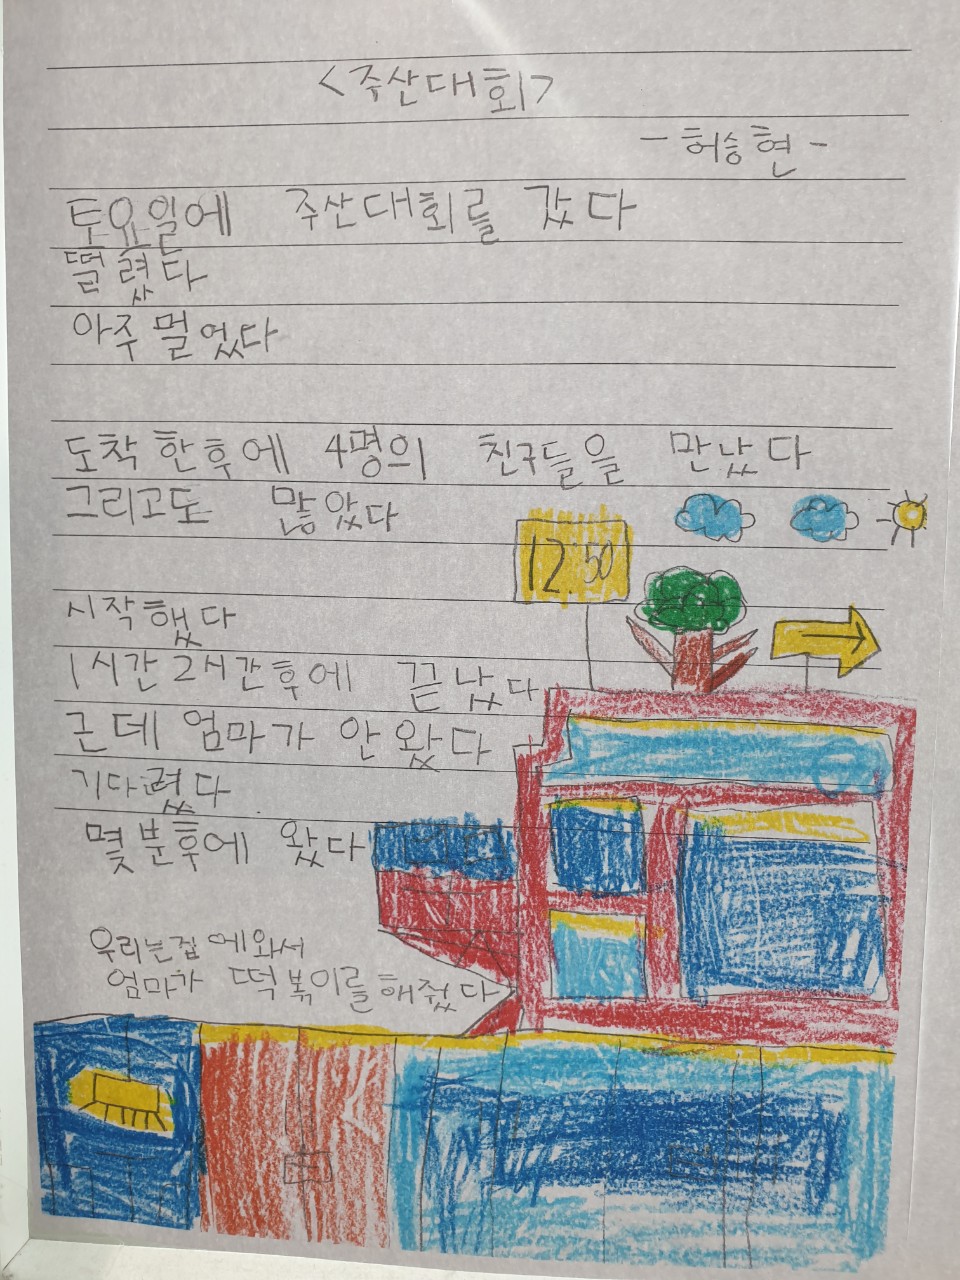 <주산대회>
- 허승현 -
토요일에 주산대회를 갔다
떨렸다
아주 멀었다
도착한후에 4명의 친구들을 만났다
그리고도 많았다
12:50
시작했다
1시간2시간후에 끝났다
근데 엄마가 안 왔다
기다렸다
몇분후에 왔다
우리는집에와서
엄마가 떡볶이를해줬다